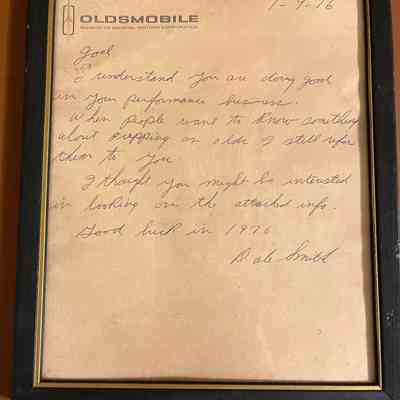 1-9-76
OLDSMOBILE
I understand you are doing good
in your performance business.
When people want to know something
about an olds I still refer
them to you
I thought you might be interested
in looking over the attached info.
Good luck in 1976
Dale Smith